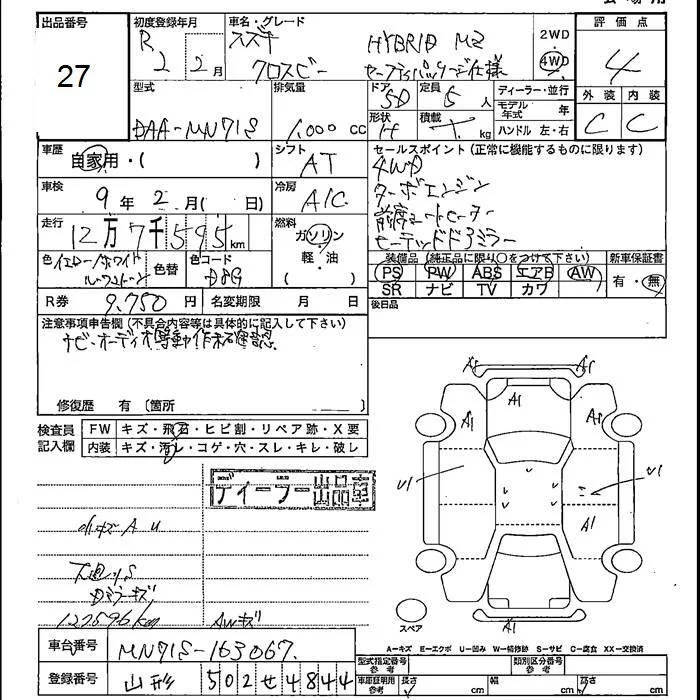 出品番号
27
初度登録年月
R 2 2月
車名・グレード
スズキ HYBRID MZ
クロスビー セーフティパッケージ仕様
2WD
4WD
評価点
4
外装 内装
C C
型式
DAA-MN71S
排気量
1,000 cc
ドア 5D
定員 5人
形状 H
積載 kg
ディーラー・並行
モデル年式 年
ハンドル 左・右
車歴
自家用・( )
シフト
AT
セールスポイント(正常に機能するものに限ります)
4WD
ターボエンジン
前席シートヒーター
ヒーテッドドアミラー
車検
9年2月(日)
冷房
A/C
走行
12万7千595km
燃料
ガソリン
軽・油
( )
色 イエロー/ホワイト
ルーフ2トーン
色替
色コード
D8G
装備品(純正品に限り○をつけて下さい)
PS PW ABS エアB AW
SR ナビ TV カワ
新車保証書
有・無
R券 9.750円
名変期限 月 日
後日品
注意事項申告欄(不具合内容等は具体的に記入して下さい)
ナビ・オーディオ等動作未確認
修復歴 有〔箇所 〕
検査員記入欄
FW キズ・飛石・ヒビ割・リペア跡・X要
内装 キズ・汚レ・コゲ・穴・スレ・キレ・破レ
ディーラー出品車
小キズ A U
下廻りS
Dミラーキズ
127596km
AWキズ
A1
A1
A1
A1
A1
U1
U1
A1
A1
スペア
A-キズ E-エクボ U-凹み W-補修跡 S-サビ C-腐食 XX-交換済
車台番号
MN71S-163067.
登録番号
山形 502せ4844
型式指定番号
参考
類別区分番号
参考
車庫証明用
参考
長さ cm
幅 cm
高さ cm